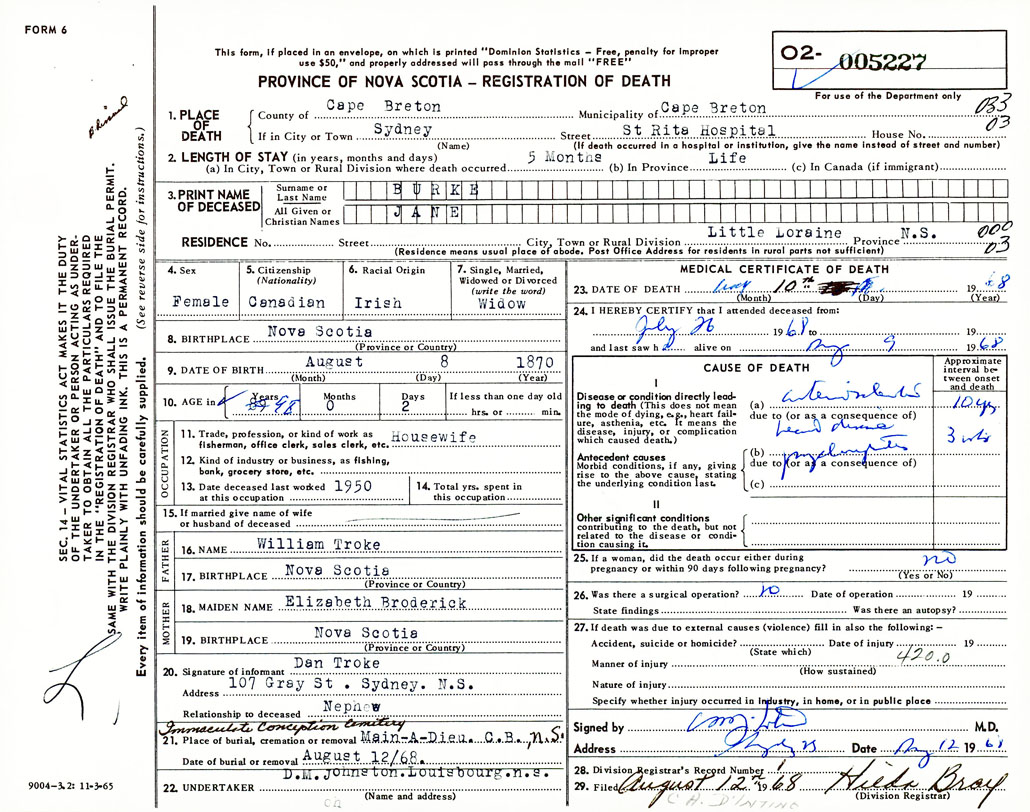 FORM 6
This form, if placed in an envelope, on which is printed "Dominion Statistics – Free, penalty for improper
use $50," and properly addressed will pass through the mail "FREE"
PROVINCE OF NOVA SCOTIA – REGISTRATION OF DEATH
O2- 005227
For use of the Department only
1. PLACE OF DEATH
County of Cape Breton Municipality of Cape Breton 033
If in City or Town Sydney Street St Rita Hospital House No. 03
(Name) (If death occurred in a hospital or institution, give the name instead of street and number)
2. LENGTH OF STAY (in years, months and days)
(a) In City, Town or Rural Division where death occurred 5 Months (b) In Province Life (c) In Canada (if immigrant)
3. PRINT NAME OF DECEASED
Surname or Last Name BURKE
All Given or Christian Names JANE
RESIDENCE No. Street City, Town or Rural Division Little Loraine Province N.S. 000
(Residence means usual place of abode. Post Office Address for residents in rural parts not sufficient) 03
4. Sex Female
5. Citizenship (Nationality) Canadian
6. Racial Origin Irish
7. Single, Married, Widowed or Divorced (write the word) Widow
8. BIRTHPLACE Nova Scotia
(Province or Country)
9. DATE OF BIRTH August 8 1870
(Month) (Day) (Year)
10. AGE in Years 98 Months 0 Days 2 If less than one day old hrs. or min.
OCCUPATION
11. Trade, profession, or kind of work as
fisherman, office clerk, sales clerk, etc. Housewife
12. Kind of industry or business, as fishing,
bank, grocery store, etc.
13. Date deceased last worked at this occupation 1950
14. Total yrs. spent in this occupation
15. If married give name of wife
or husband of deceased
FATHER
16. NAME William Troke
17. BIRTHPLACE Nova Scotia
(Province or Country)
MOTHER
18. MAIDEN NAME Elizabeth Broderick
19. BIRTHPLACE Nova Scotia
(Province or Country)
20. Signature of informant Dan Troke
Address 107 Gray St . Sydney. N.S.
Relationship to deceased Nephew
Immaculate Conception Cemetery
21. Place of burial, cremation or removal Main-A-Dieu. C.B., N.S.
Date of burial or removal August 12/68.
22. UNDERTAKER D.M.Johnston.Louisbourg.n.s.
(Name and address)
MEDICAL CERTIFICATE OF DEATH
23. DATE OF DEATH 10th 1968
(Month) (Day) (Year)
24. I HEREBY CERTIFY that I attended deceased from:
July 26 1968 to 19
and last saw h alive on Aug 9 1968
CAUSE OF DEATH
Approximate interval between onset and death
I
Disease or condition directly leading to death (This does not mean the mode of dying, e.g., heart failure, asthenia, etc. It means the disease, injury, or complication which caused death.)
(a) 10 yrs
due to (or as a consequence of)
heart disease
Antecedent causes
Morbid conditions, if any, giving rise to the above cause, stating the underlying condition last.
(b) 3 wks
due to (or as a consequence of)
(c)
II
Other significant conditions contributing to the death, but not related to the disease or condition causing it.
25. If a woman, did the death occur either during
pregnancy or within 90 days following pregnancy? no
(Yes or No)
26. Was there a surgical operation? no Date of operation 19
State findings Was there an autopsy?
27. If death was due to external causes (violence) fill in also the following: –
Accident, suicide or homicide? Date of injury 19
(State which) 420.0
Manner of injury
(How sustained)
Nature of injury
Specify whether injury occurred in Industry, in home, or in public place
Signed by M.D.
Address Date Aug 12 1968
28. Division Registrar's Record Number
29. Filed August 12th 1968 Hilda Bray
(Division Registrar)
SEC. 14 – VITAL STATISTICS ACT MAKES IT THE DUTY
OF THE UNDERTAKER OR PERSON ACTING AS UNDER-
TAKER TO OBTAIN ALL THE PARTICULARS REQUIRED
IN THE "REGISTRATION OF DEATH" AND TO FILE THE
SAME WITH THE DIVISION REGISTRAR WHO SHALL ISSUE THE BURIAL PERMIT.
WRITE PLAINLY WITH UNFADING INK. THIS IS A PERMANENT RECORD.
Every item of information should be carefully supplied. (See reverse side for instructions.)
9004-3.2: 11-3-65